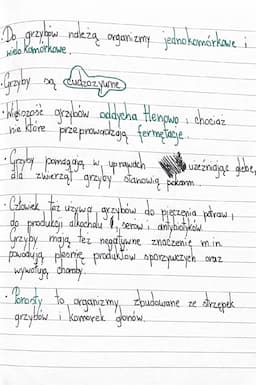 • Do grzybów należą organizmy jednokomórkowe i
wielokomórkowe.
• Grzyby są cudzożywne
• Większość grzybów oddycha tlenowo, chociaż
nie które przeprowadzają fermętacje.
• Grzyby pomagają w uprawach użeźniając glebe,
dla zwierząt grzyby stanowią pokarm.
• Człowiek też używa grzybów do pieczenia potraw,
do produkcji alkoholu, serów i antybiotyków
Grzyby mają też negatywne znaczenie m.in.
powodują pleśnię produktów sporzywczych oraz
wywołują choroby.
• Porosty to organizmy zbudowane ze strzępek
grzybów i komórek glonów.